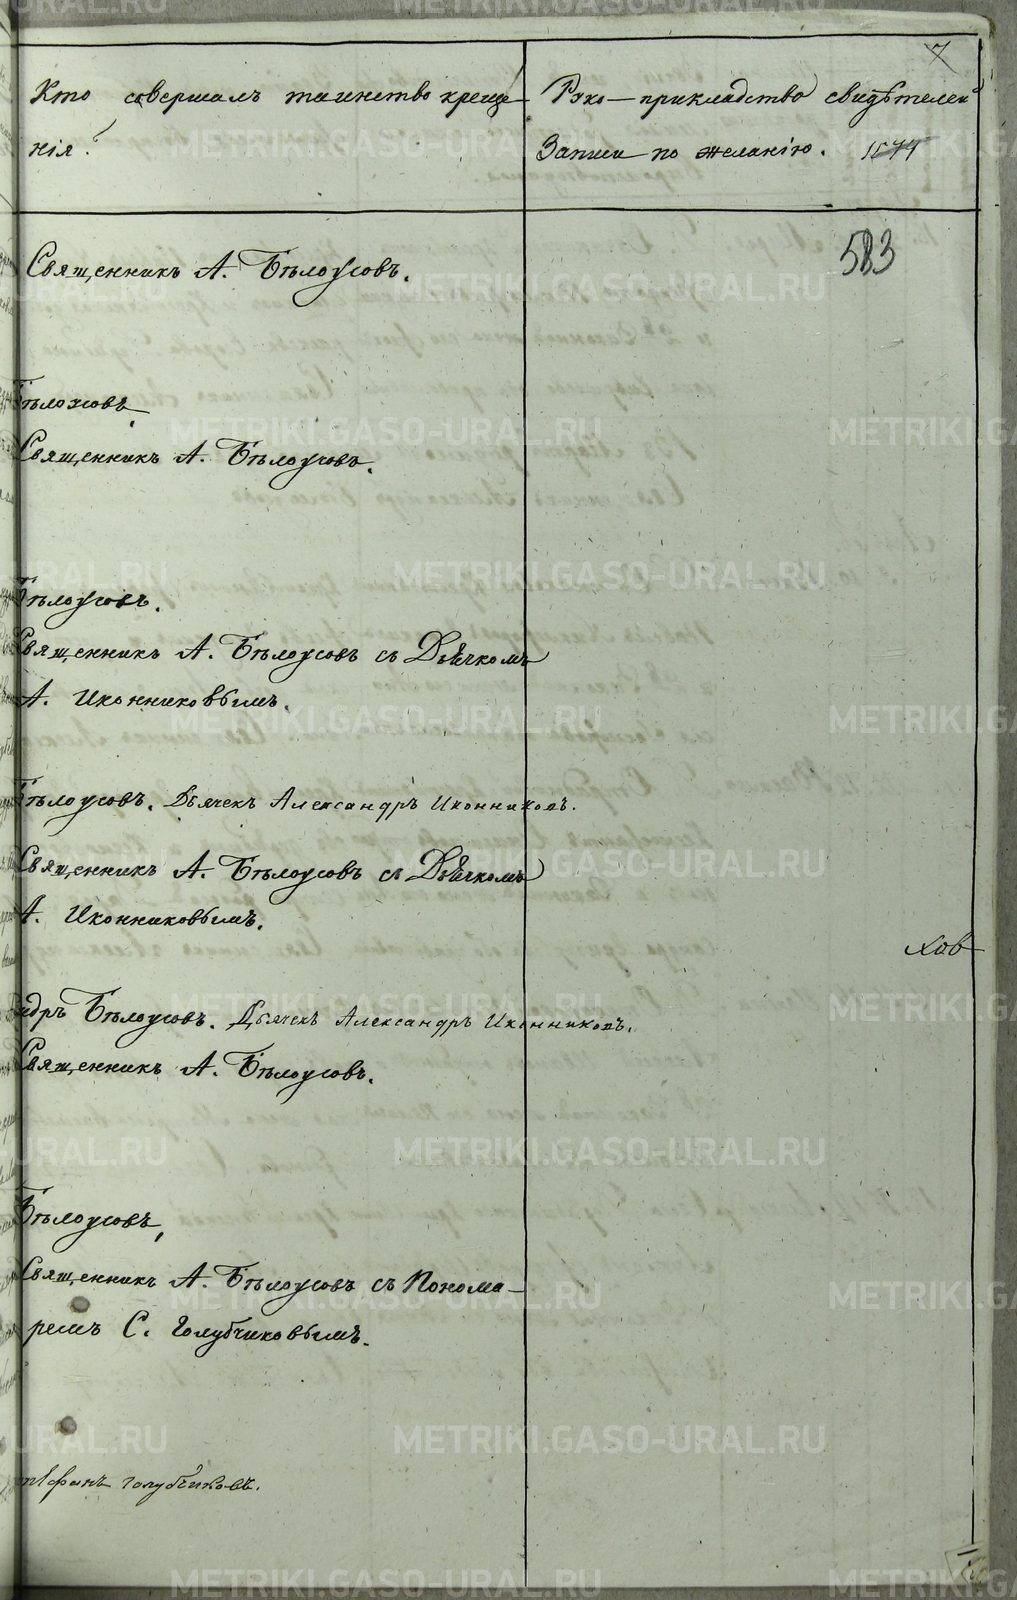 7
Кто совершалъ таинство креще-
нія?
Руко-прикладство свидѣтелей
Записи по желанію. 1574
583
Священникъ А. Бѣлоусовъ.
Бѣлоусовъ.
Священникъ А. Бѣлоусовъ.
Бѣлоусовъ.
Священникъ А. Бѣлоусовъ съ Дьячкомъ
А. Иконниковымъ.
Бѣлоусовъ. Дьячекъ Александръ Иконниковъ.
Священникъ А. Бѣлоусовъ съ Дьячкомъ
А. Иконниковымъ.
хов
ндръ Бѣлоусовъ. Дьячекъ Александръ Иконниковъ.
Священникъ А. Бѣлоусовъ.
Бѣлоусовъ,
Священникъ А. Бѣлоусовъ съ Понома-
ремъ С. Голубчиковымъ.
Голубчиковъ.
METRIKI.GASO-URAL.RU